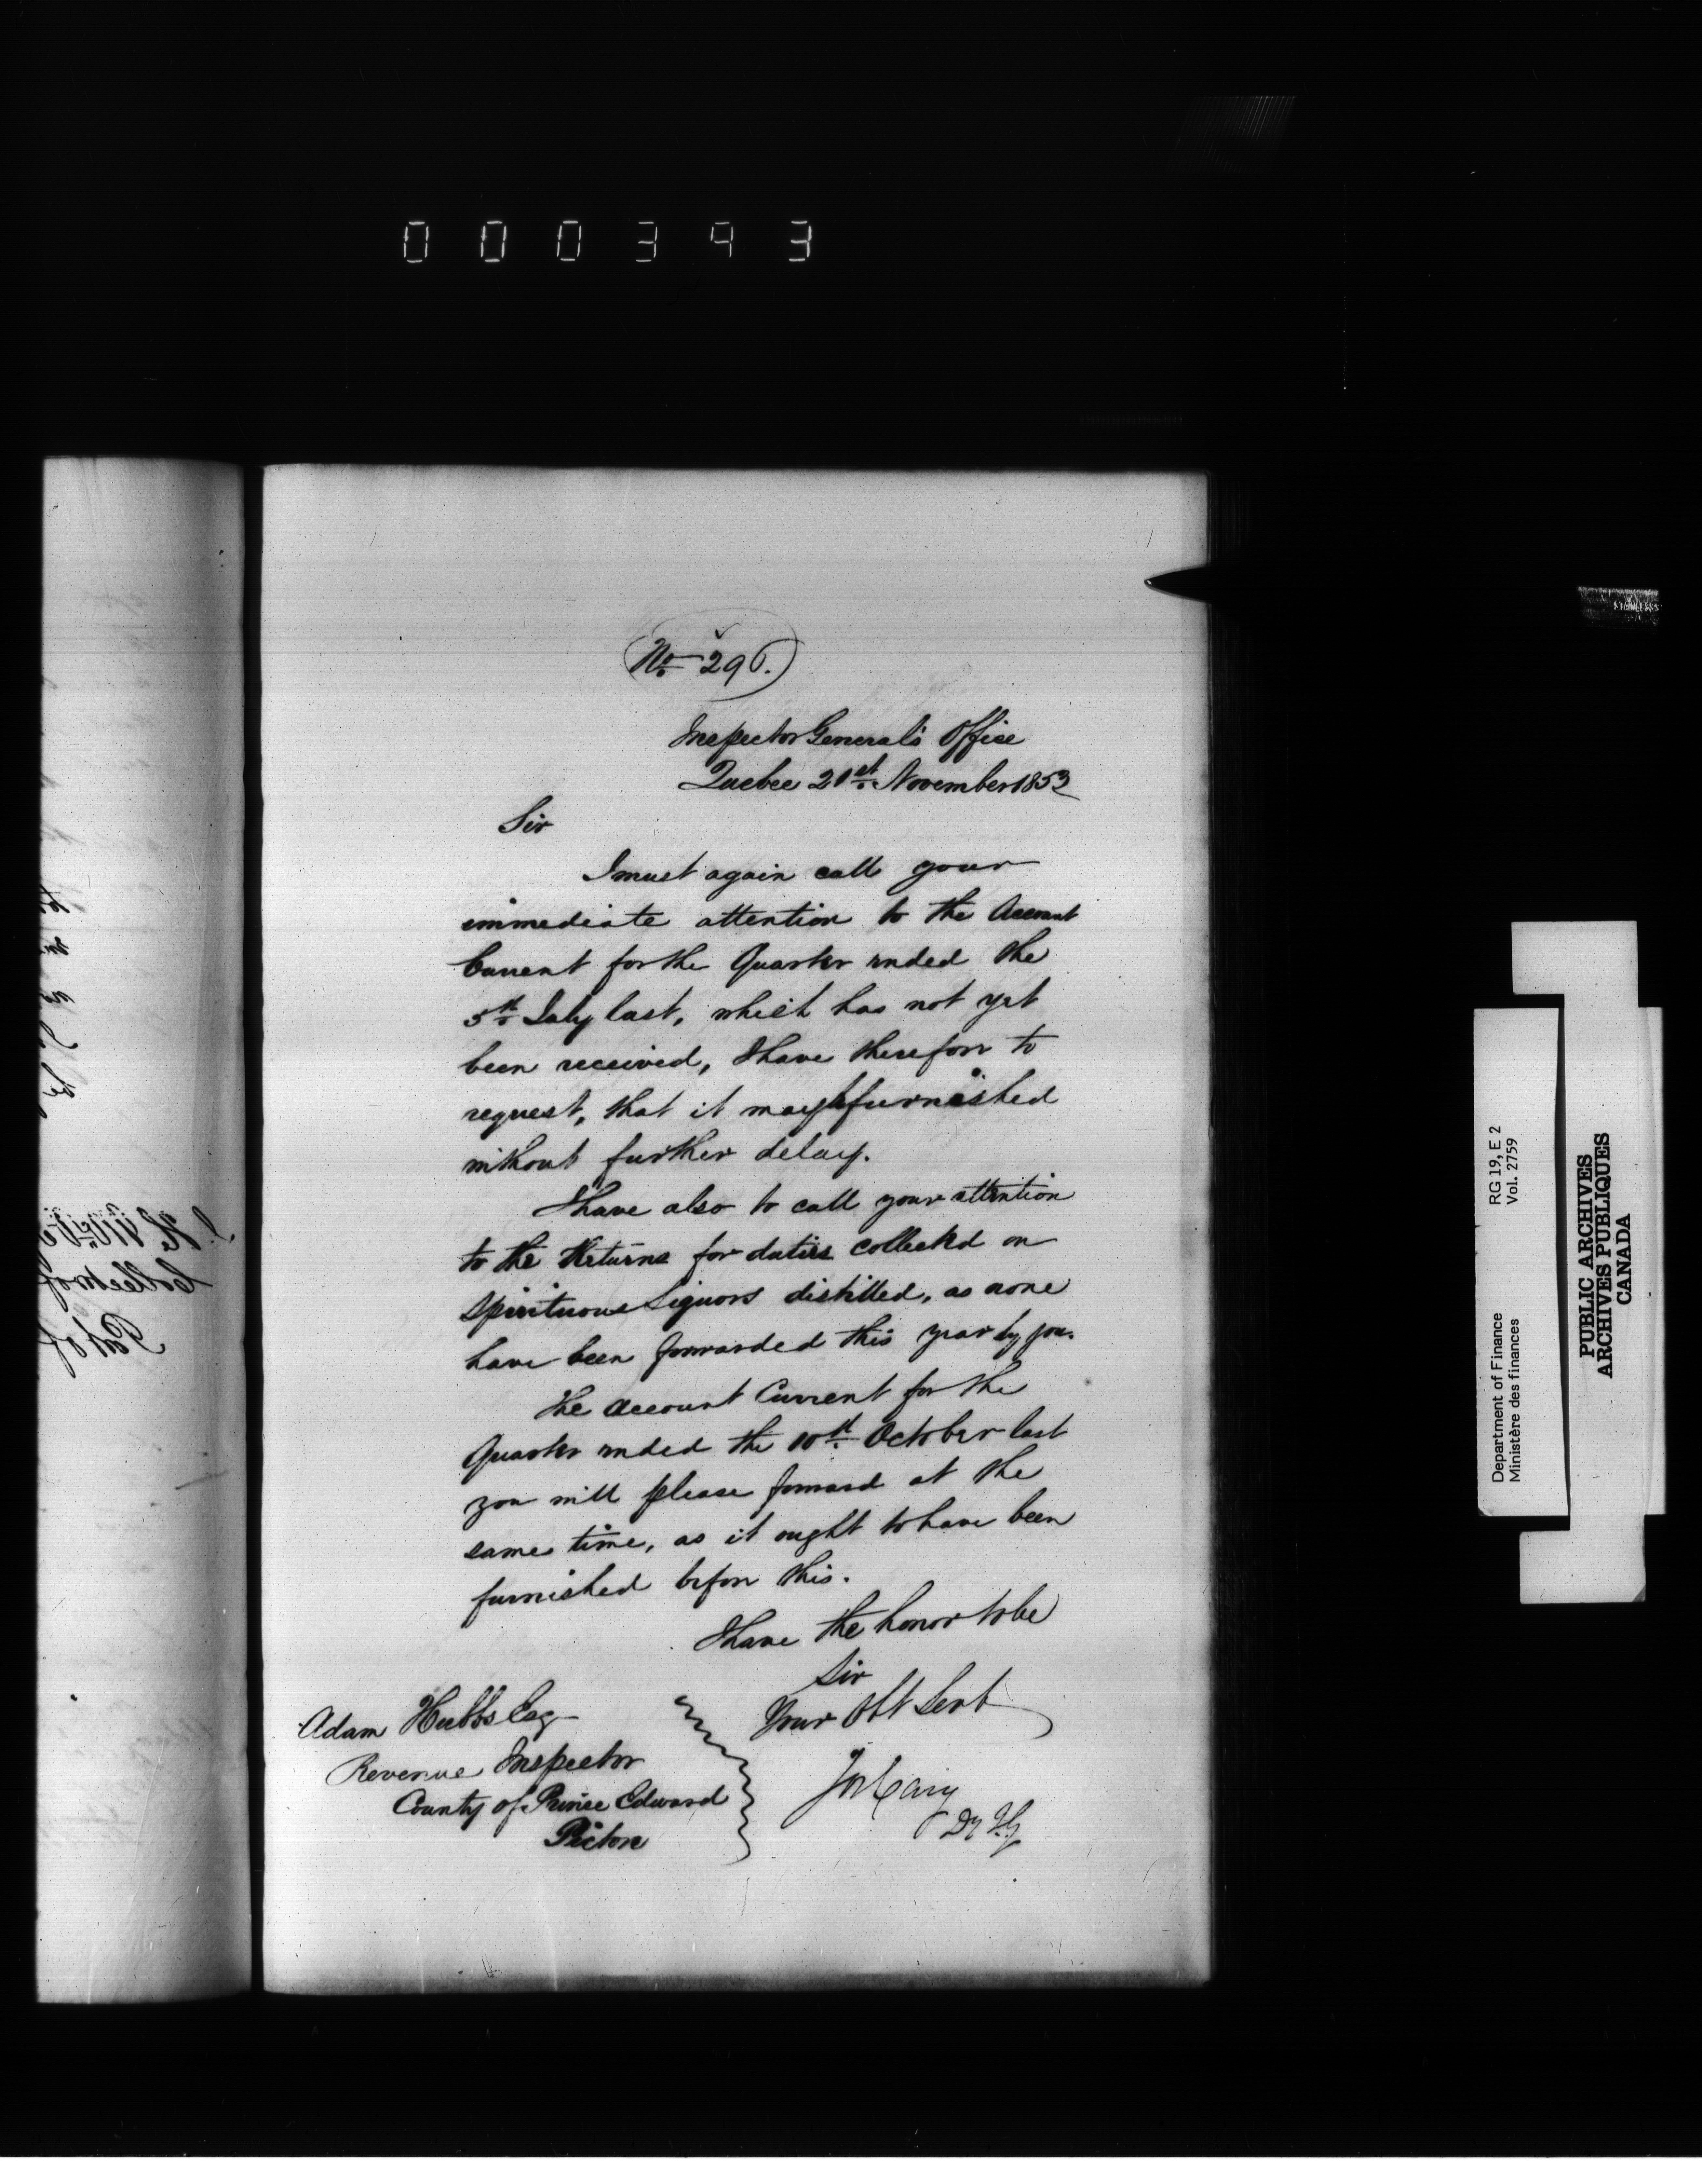 000393
No 296.
Inspector General's Office
Quebec 21st November 1853
Sir
I must again call your
immediate attention to the Account
Current for the Quarter ended the
5th July last, which has not yet
been received, I have therefore to
request, that it may be furnished
without further delay.
I have also to call your attention
to the Returns for duties collected on
Spirituous Liquors distilled, as none
have been forwarded this year by you.
The Account Current for the
Quarter ended the 10th October last
you will please forward at the
same time, as it ought to have been
furnished before this.
I have the honor to be
Sir
Your Obt Servt
Jos Cary
Dy I.G.
Adam Hubbs Esq
Revenue Inspector
County of Prince Edward
Picton
Department of Finance RG 19, E 2
Ministère des finances Vol. 2759
PUBLIC ARCHIVES
ARCHIVES PUBLIQUES
CANADA
STAINLESS